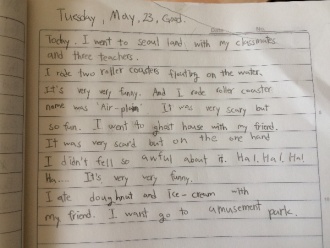 Tuesday, May, 23, Good.
Today, I went to seoul land with my classmates
and three teachers.
I rode two roller coasters floating on the water.
It's very very funny. And I rode roller coaster
name was 'Air-plain' It was very scary but
so fun. I went to ghost house with my friend.
It was very scard but on the one hand
I didn't fell so awful about it. Ha!, Ha!, Ha!
Ha.... It's very very funny.
I ate doughnut and ice-cream with
my friend. I want go to amusement park.